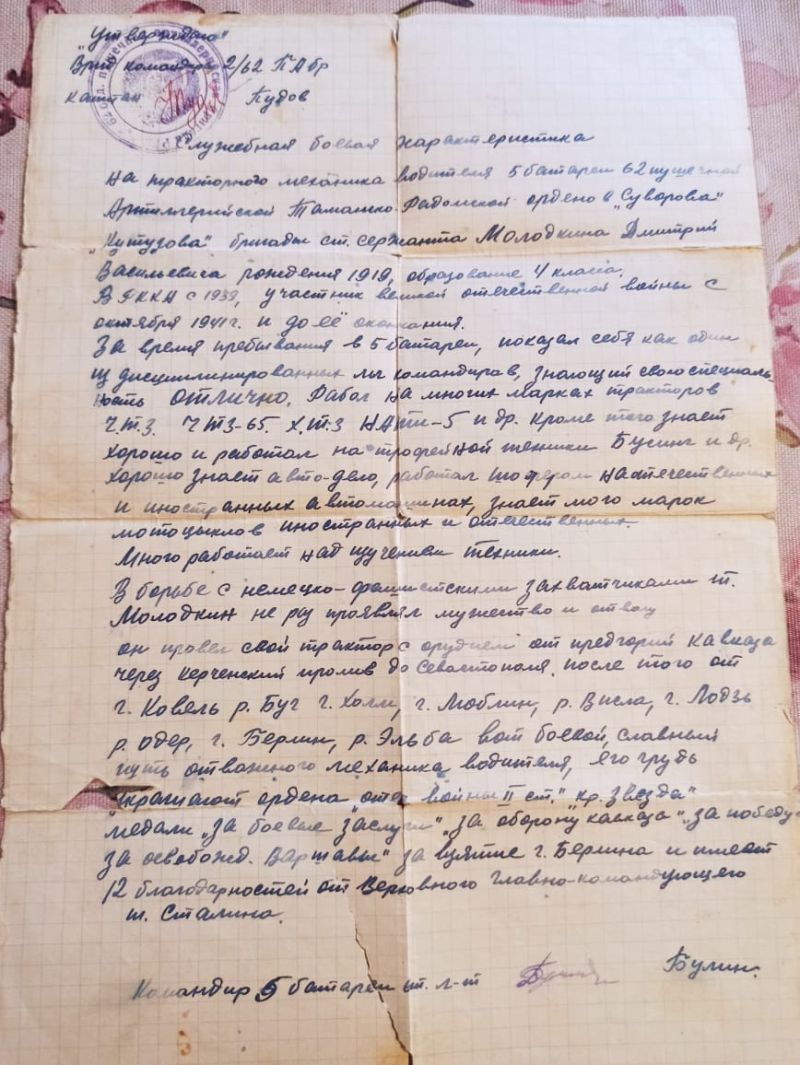 "Утверждаю"
Врид командира 2/62 ПАбр
Капитан Пудов
Служебная боевая характеристика
на тракторного механика водителя 5 батареи 62 пушечной
Артиллерийской Таманско-Радомской ордено в "Суворова"
"Кутузова" бригады ст. сержанта Молодкина Дмитрий
Васильевича рождения 1919, образование 4 класса.
В РККА с 1939, участник великой отечественной войны с
октября 1941 г. и до её окончания.
За время пребывания в 5 батареи, показал себя как один
из дисциплинированных мл. командиров, знающий свою специаль-
ность отлично. Работ на многих марках тракторов
Ч.Т.З. ЧТЗ-65. Х.Т.З НАТИ-5 и др. кроме того знает
хорошо и работал на трофейной техники Бусинг и др.
хорошо знает авто-дело, работал шофером на отечественных
и иностранных автомашинах, знает много марок
мотоцыклов иностранных и отечественных.
Много работает над изучением техники.
В борьбе с немецко-фашистскими захватчиками т.
Молодкин не раз проявлял мужество и отвагу
он провел свой трактор с орудием от предгорий Кавказа
через керченский пролив до Севастополя, после того от
г. Ковель р. Буг г. Холм, г. Люблин, р. Висла, г. Лодзь
р. Одер, г. Берлин, р. Эльба вот боевой, славный
путь отважного механика водителя, его грудь
украшают ордена "отеч войны II ст." "кр. Звезда"
медали "за боевые заслуги" "за оборону кавказа" "за победу"
за освобожд. Варшавы" за взятие г. Берлина и имеет
12 благодарностей от Верховного главно-командующего
т. Сталина.
Командир 5 батареи ст. л-т Булин.